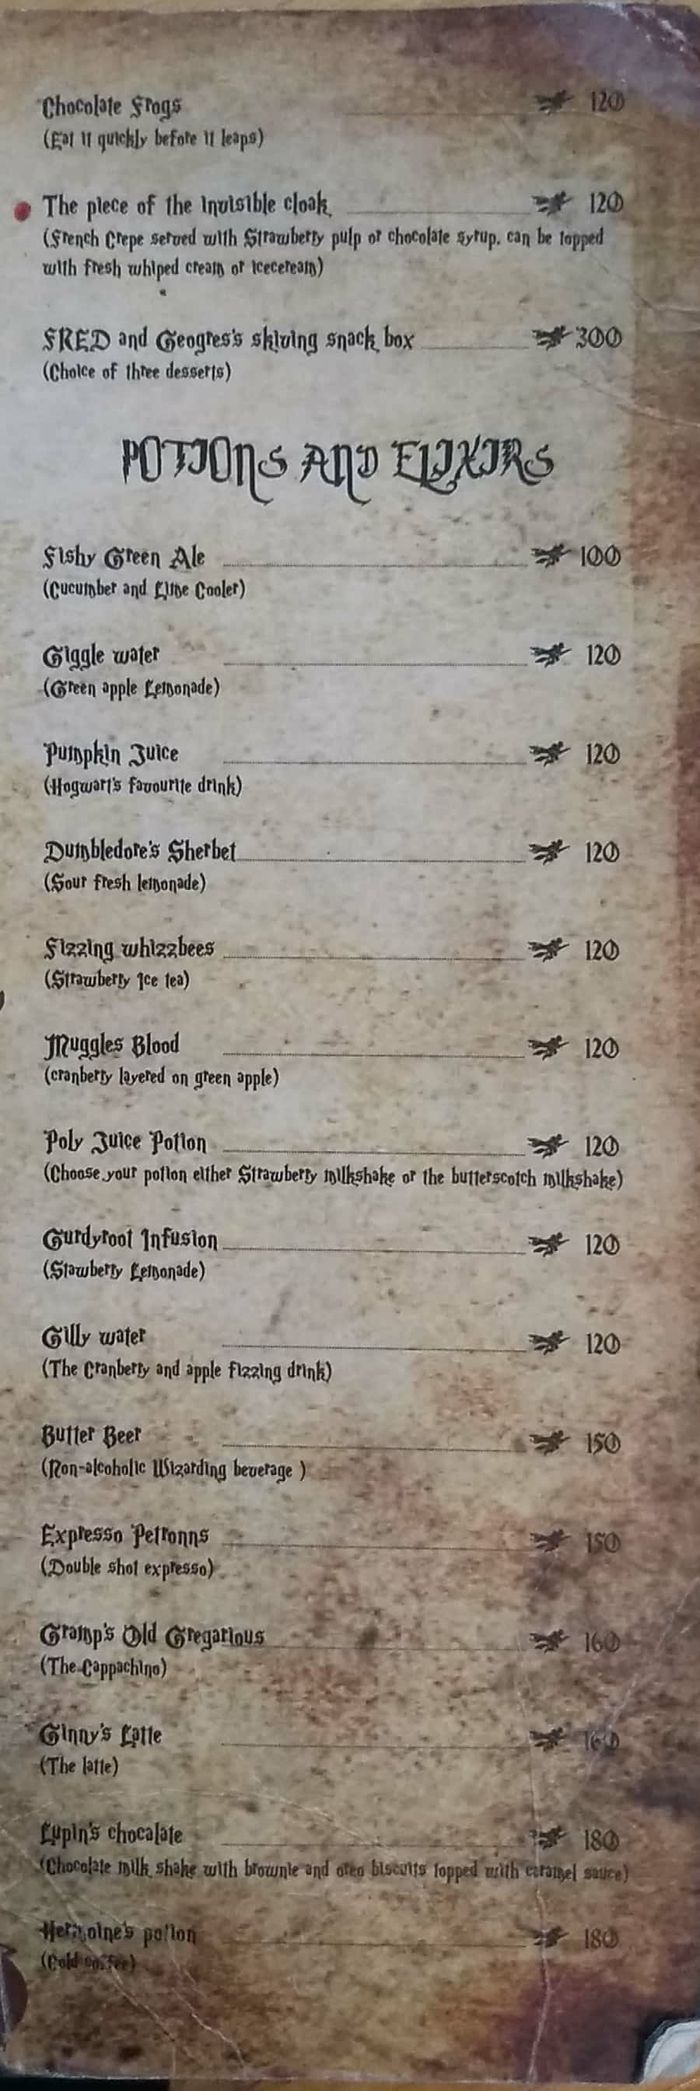 Chocolate Frogs 120
(Eat it quickly before it leaps)
The piece of the invisible cloak 120
(French Crepe served with Strawberry pulp or chocolate syrup, can be topped
with fresh whiped cream or icecream)
FRED and Geogres's skiving snack box 300
(Choice of three desserts)
POTIONS AND ELIXIRS
Fishy Green Ale 100
(Cucumber and Lime Cooler)
Giggle water 120
(Green apple Lemonade)
Pumpkin Juice 120
(Hogwart's favourite drink)
Dumbledore's Sherbet 120
(Sour fresh lemonade)
Fizzing whizzbees 120
(Strawberry Ice tea)
Muggles Blood 120
(cranberry layered on green apple)
Poly Juice Potion 120
(Choose your potion either Strawberry milkshake or the butterscotch milkshake)
Gurdyroot Infusion 120
(Stawberry Lemonade)
Gilly water 120
(The Cranberry and apple fizzing drink)
Butter Beer 150
(Non-alcoholic Wizarding beverage )
Expresso Petronns 150
(Double shot expresso)
Gramp's Old Gregarious 160
(The Cappachino)
Ginny's Latte 160
(The latte)
Lupin's chocalate 180
(Chocolate milk shake with brownie and oreo biscuits topped with caramel sauce)
Hermoine's potion 180
(Cold coffee)